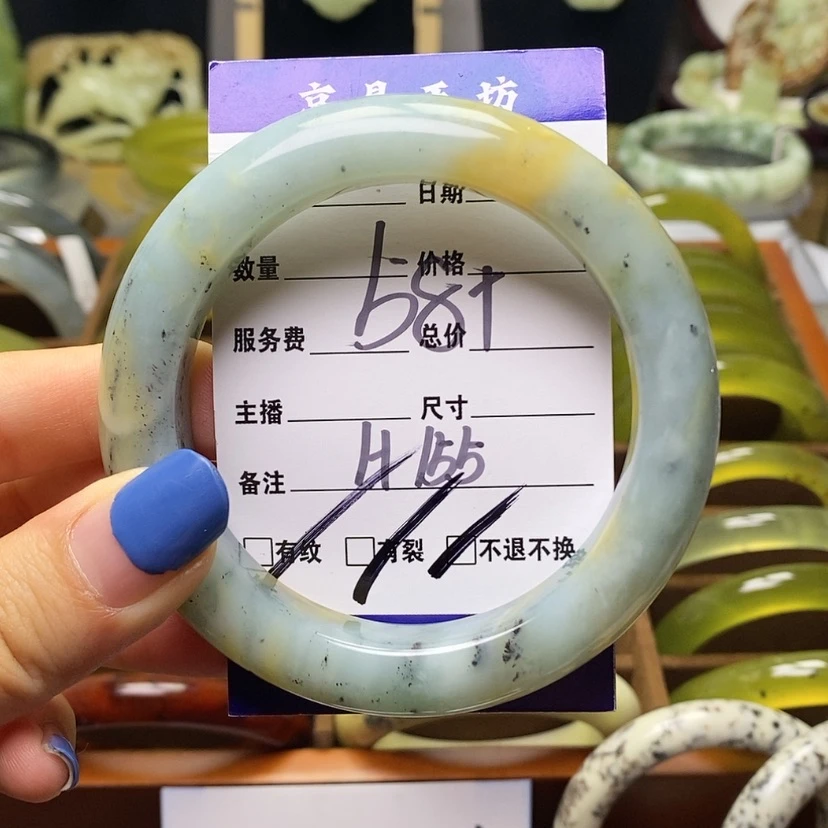 日期
数量 价格
58+
服务费 总价
主播 尺寸
H 155
备注
有纹 有裂 不退不换